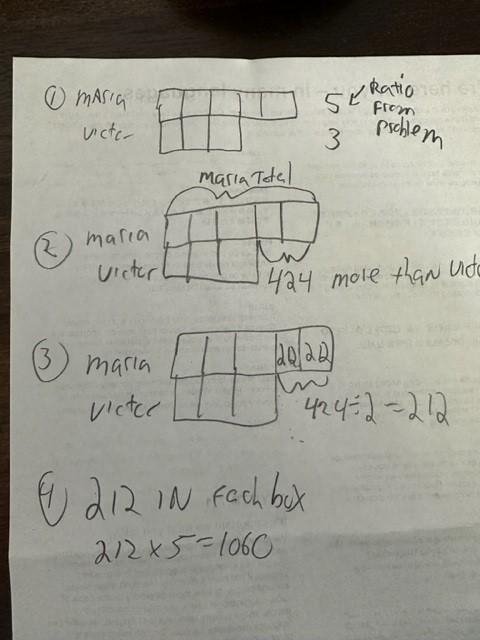 ① MAria 5 ↙ Ratio
From
Victor 3 Problem
maria Total
② maria
Victor 424 more than Victo
③ maria 212 212
Victor 424÷2=212
④ 212 IN Each box
212×5=1060